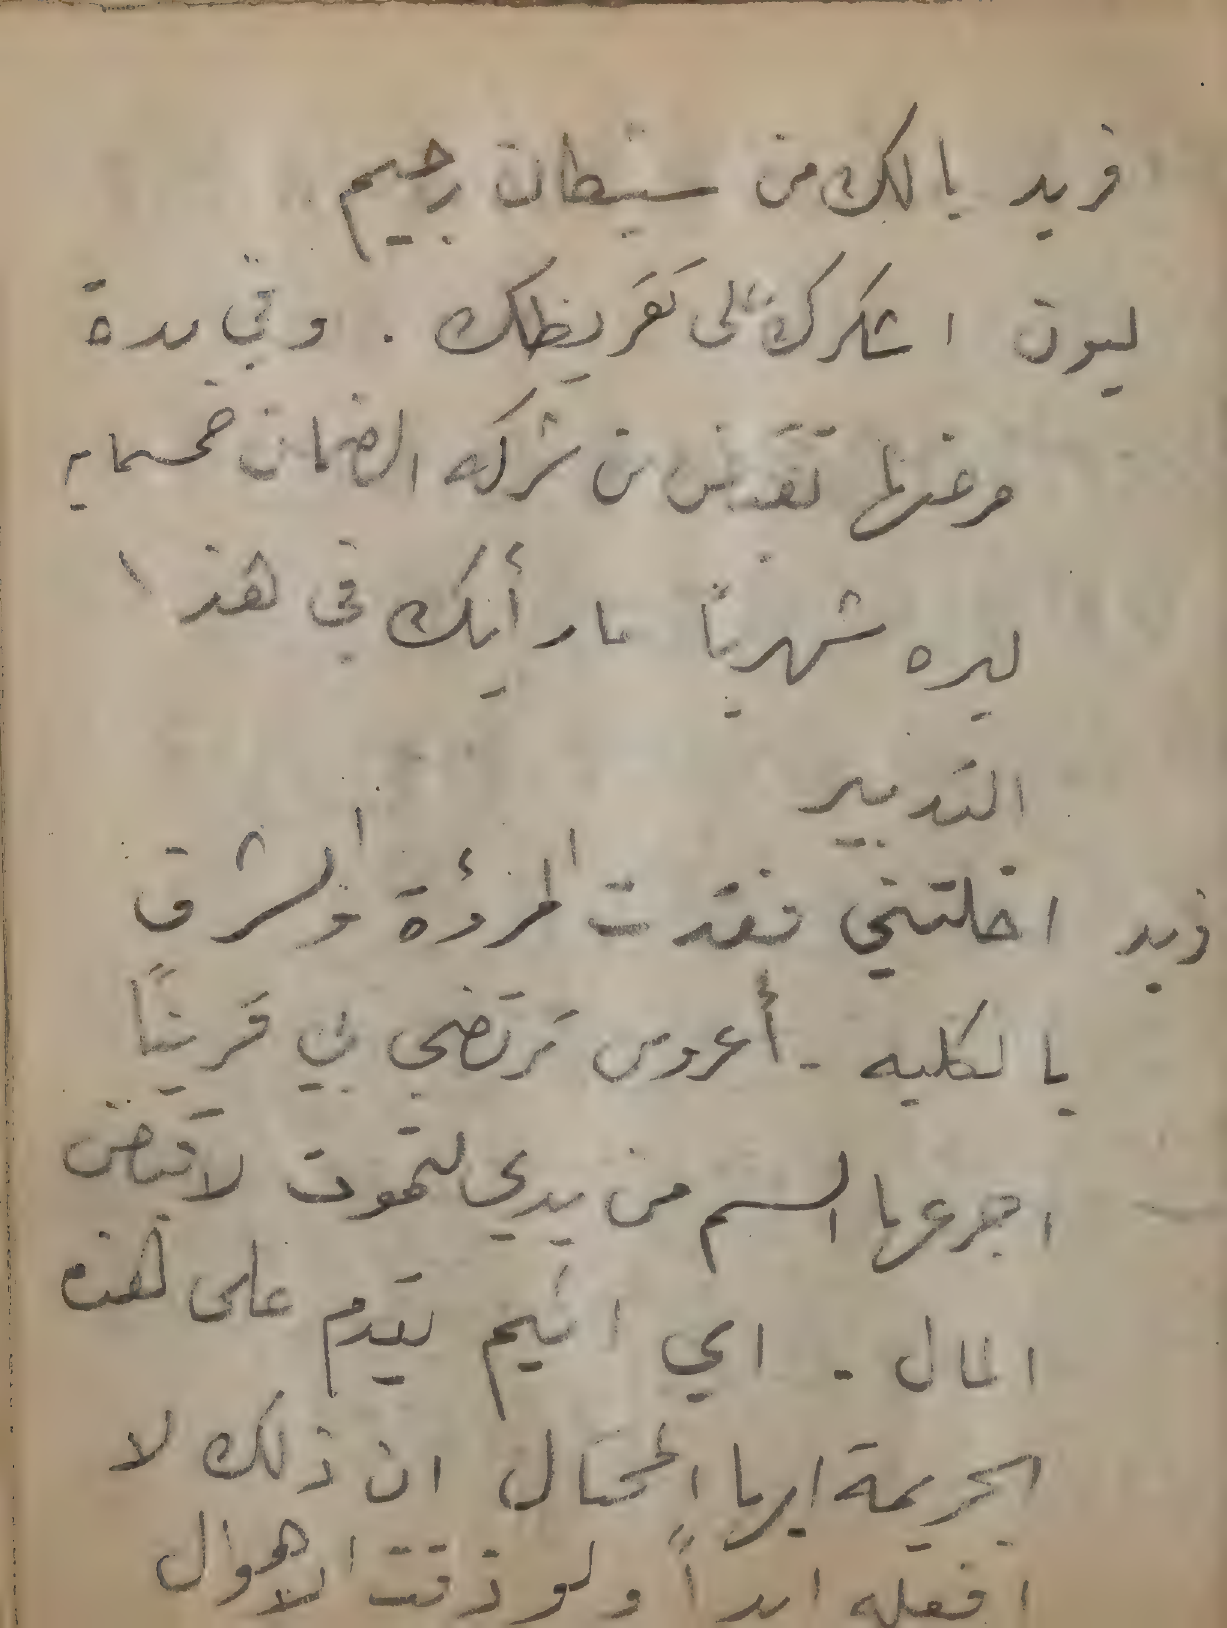 فريد يا لك من شيطان رجيم
ليون اشكرك على تقريظك . وفي مدة
مرضها تقبض من شركه الضمان خمسمايه
ليره شهرياً ما رأيك في هذا
التدبير
فريد اخلتني فقدت المرؤة والشرف
بالكليه - أعروس ترتضي بي قريناً
اجرعها السم من يدي لتموت لاقبض
المال - اي اثيم يقدم على هذه
الجريمة ايها المحتال ان ذلك لا
افعله ابداً ولو ذقت الاهوال